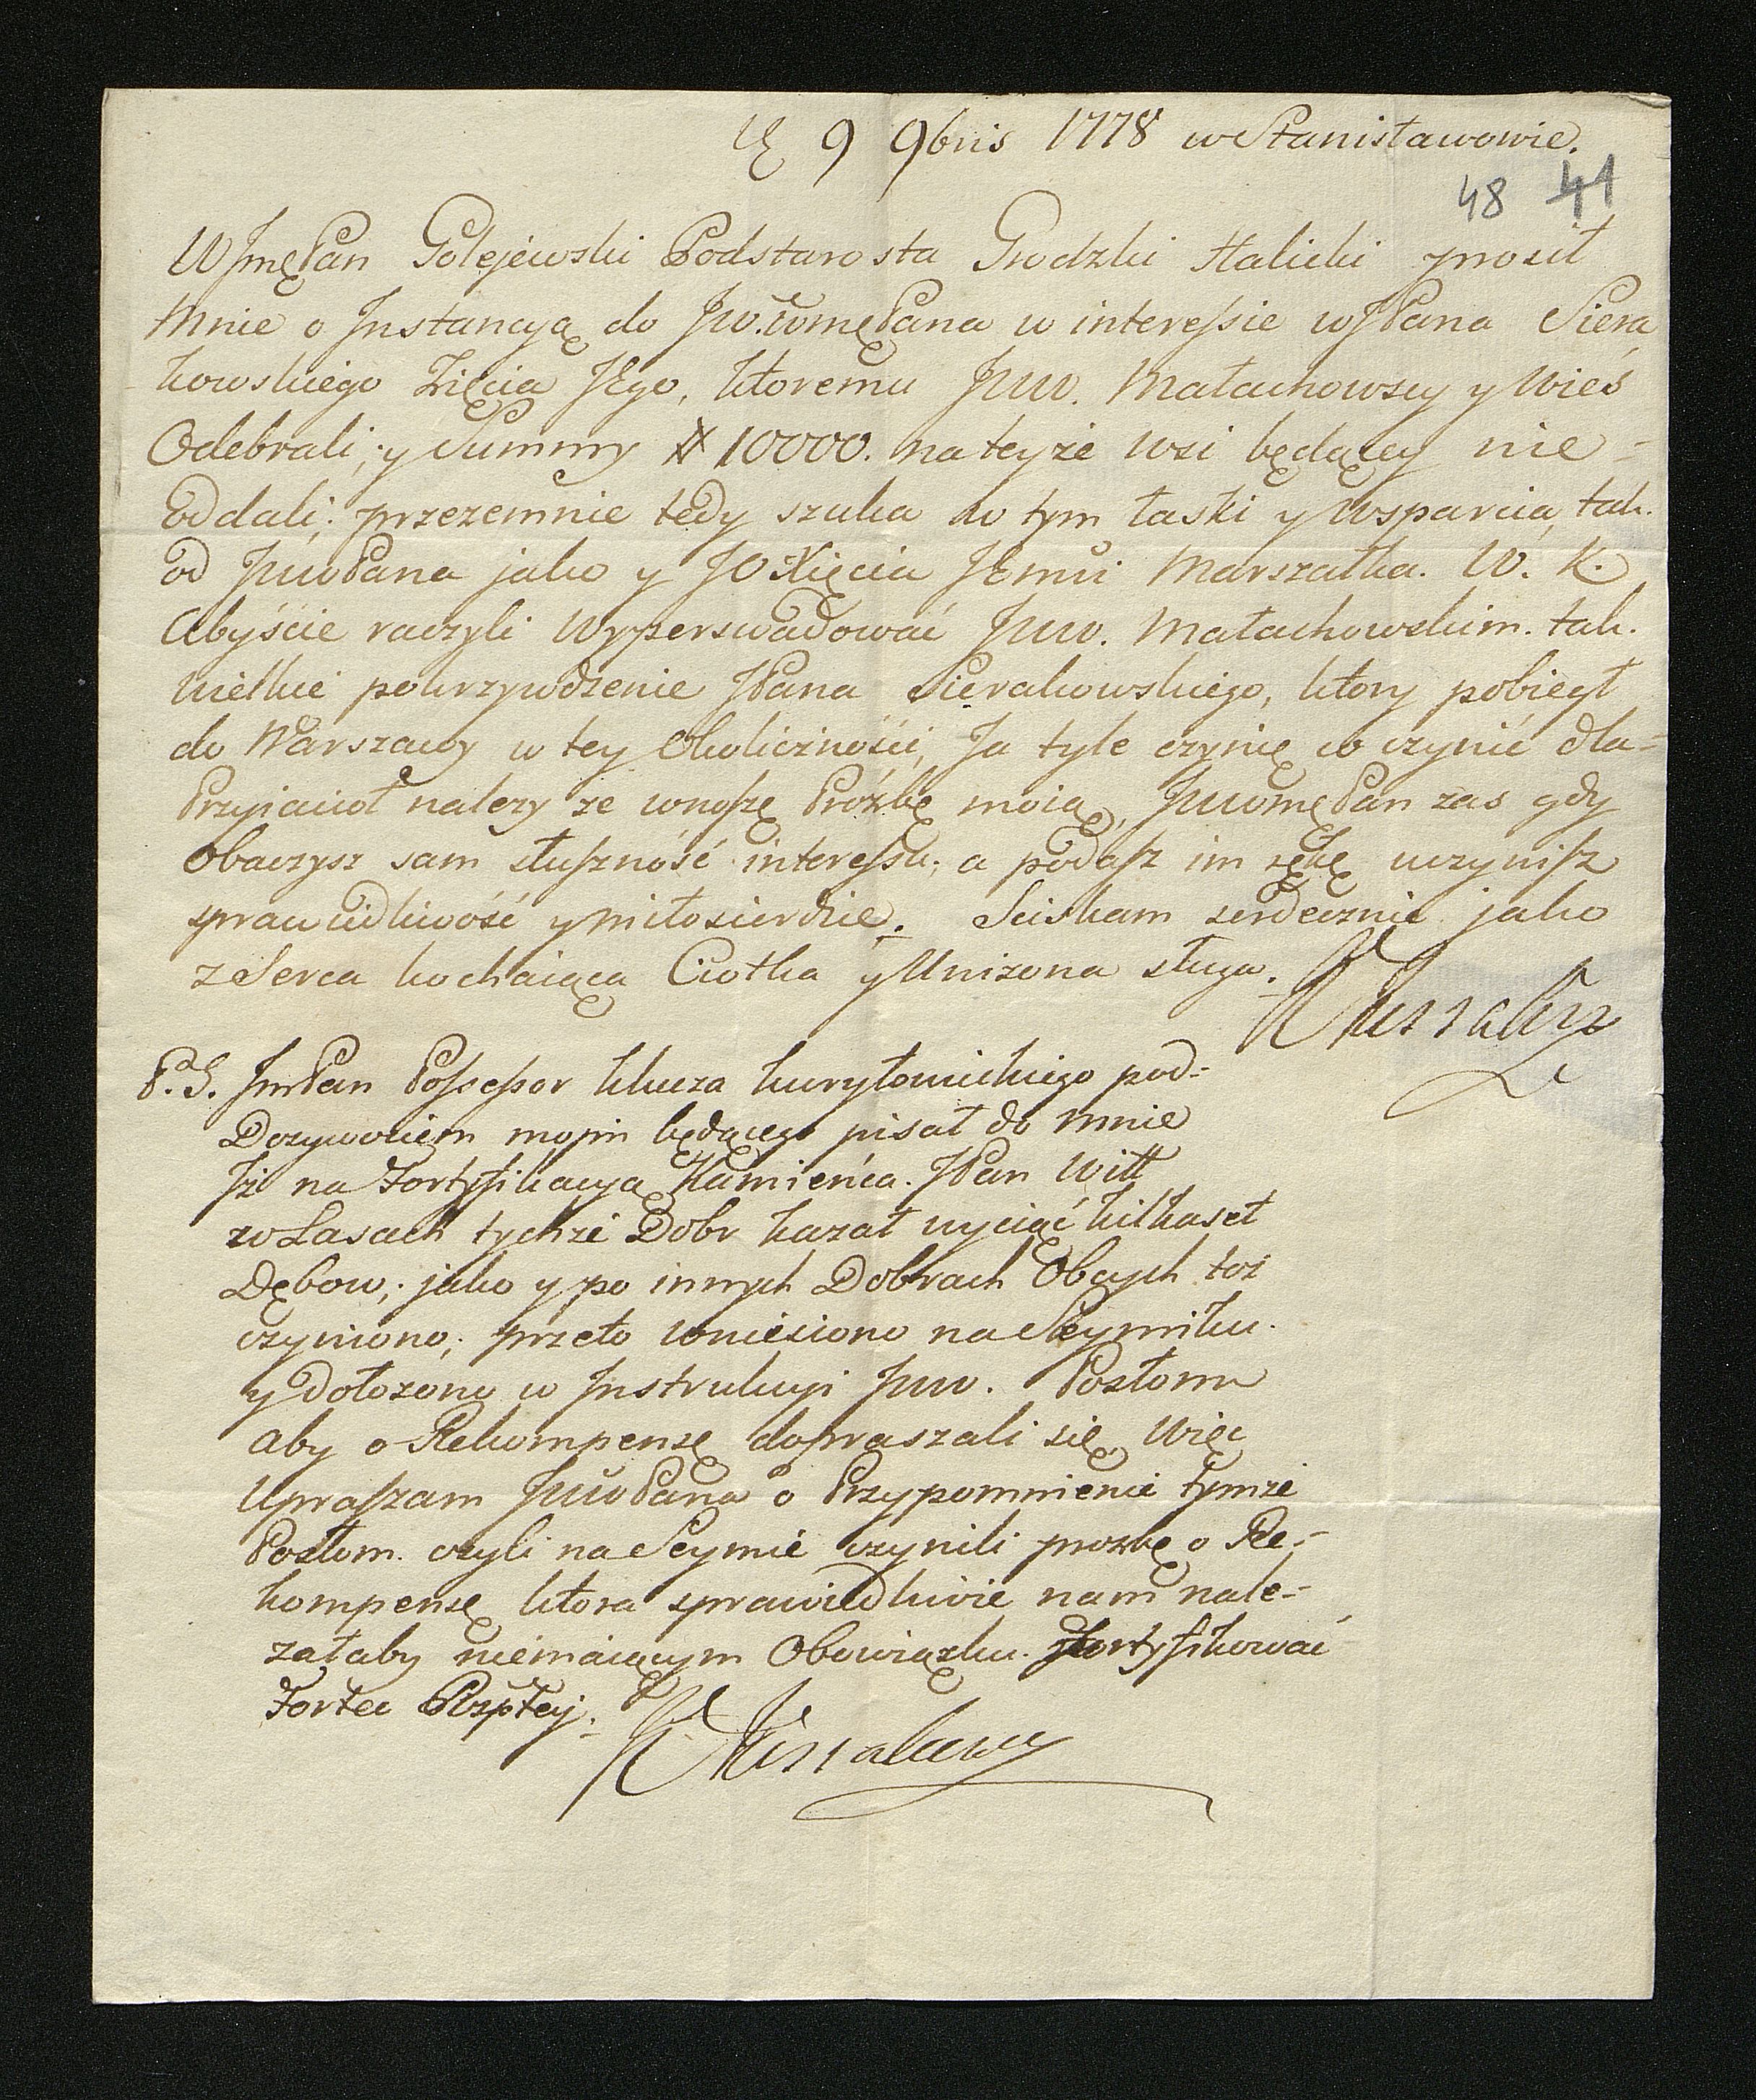 9 9bris 1778 w Stanisławowie.
48 41
WJmęPan Golejewski Podstarosta Grodzki Halicki prosił
Mnie o Instancyą do Jw.WmęPana w interessie wJPana Siera
kowskiego Zięcia JEgo, ktoremu Jww. Małachowscy y Wieś
Odebrali, y Summy # 10000. na teyże wsi będącey nie-
oddali; przezemnie tedy szuka w tym łaski y Wsparcia, tak.
od JwwPana jako y JO Xięcia JEmci Marszałka. W. K.
Abyście raczyli Wyperswadować Jww. Małachowskim. tak.
wielkie pokrzywdzenie JPana Sierakowskiego, ktory pobiegł
do Warszawy w tey Okoliczności, Ja tyle czynię co czynić dla-
Przyiacioł nalezy ze wnoszę Proźbę moią, JwwmęPan zas gdy
Obaczysz sam słuszność interessu; a podasz im rękę uczynisz
sprawiedliwość y miłosierdzie. Sciskam serdecznie jako
z Serca kochaiąca Ciotka y Unizona sługa.
P.S. JmPan Possessor klucza kuryłowieckiego pod-
Dozywociem moim będącego pisał do mnie
Jż na Fortyfikacyą Kamieńca. JPan Witt
w Lasach tychże Dobr kazał wyciąć kilkaset
Dębow; jako y po innych Dobrach Obcych toż
czyniono; przeto wniesiono na Seymiku.
y Dołozono w Instrukcyi Jww. Posłom
aby o Rekompensę dopraszali się, Więc
Upraszam JwwPana o Przypomnienie tymże
Posłom. ażyli na Seymie czynili prozbę o Re-
kompensę ktora sprawiedliwie nam nale-
załaby niemaiącym Obowiązku. Fortyfikować
Fortec Rzpltey.